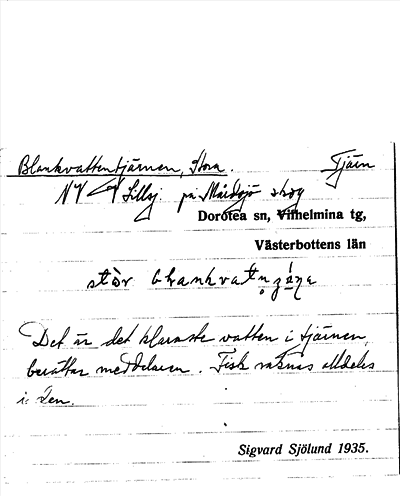 Blankvattentjärnen, Stora. Tjärn
NV Lillsj. på Mårdsjö skog
Dorotea sn, Vilhelmina tg,
Västerbottens län
stòr
Det är det klaraste vatten i tjärnen,
berättar meddelaren. Fisk saknas alldeles
i den.
Sigvard Sjölund 1935.